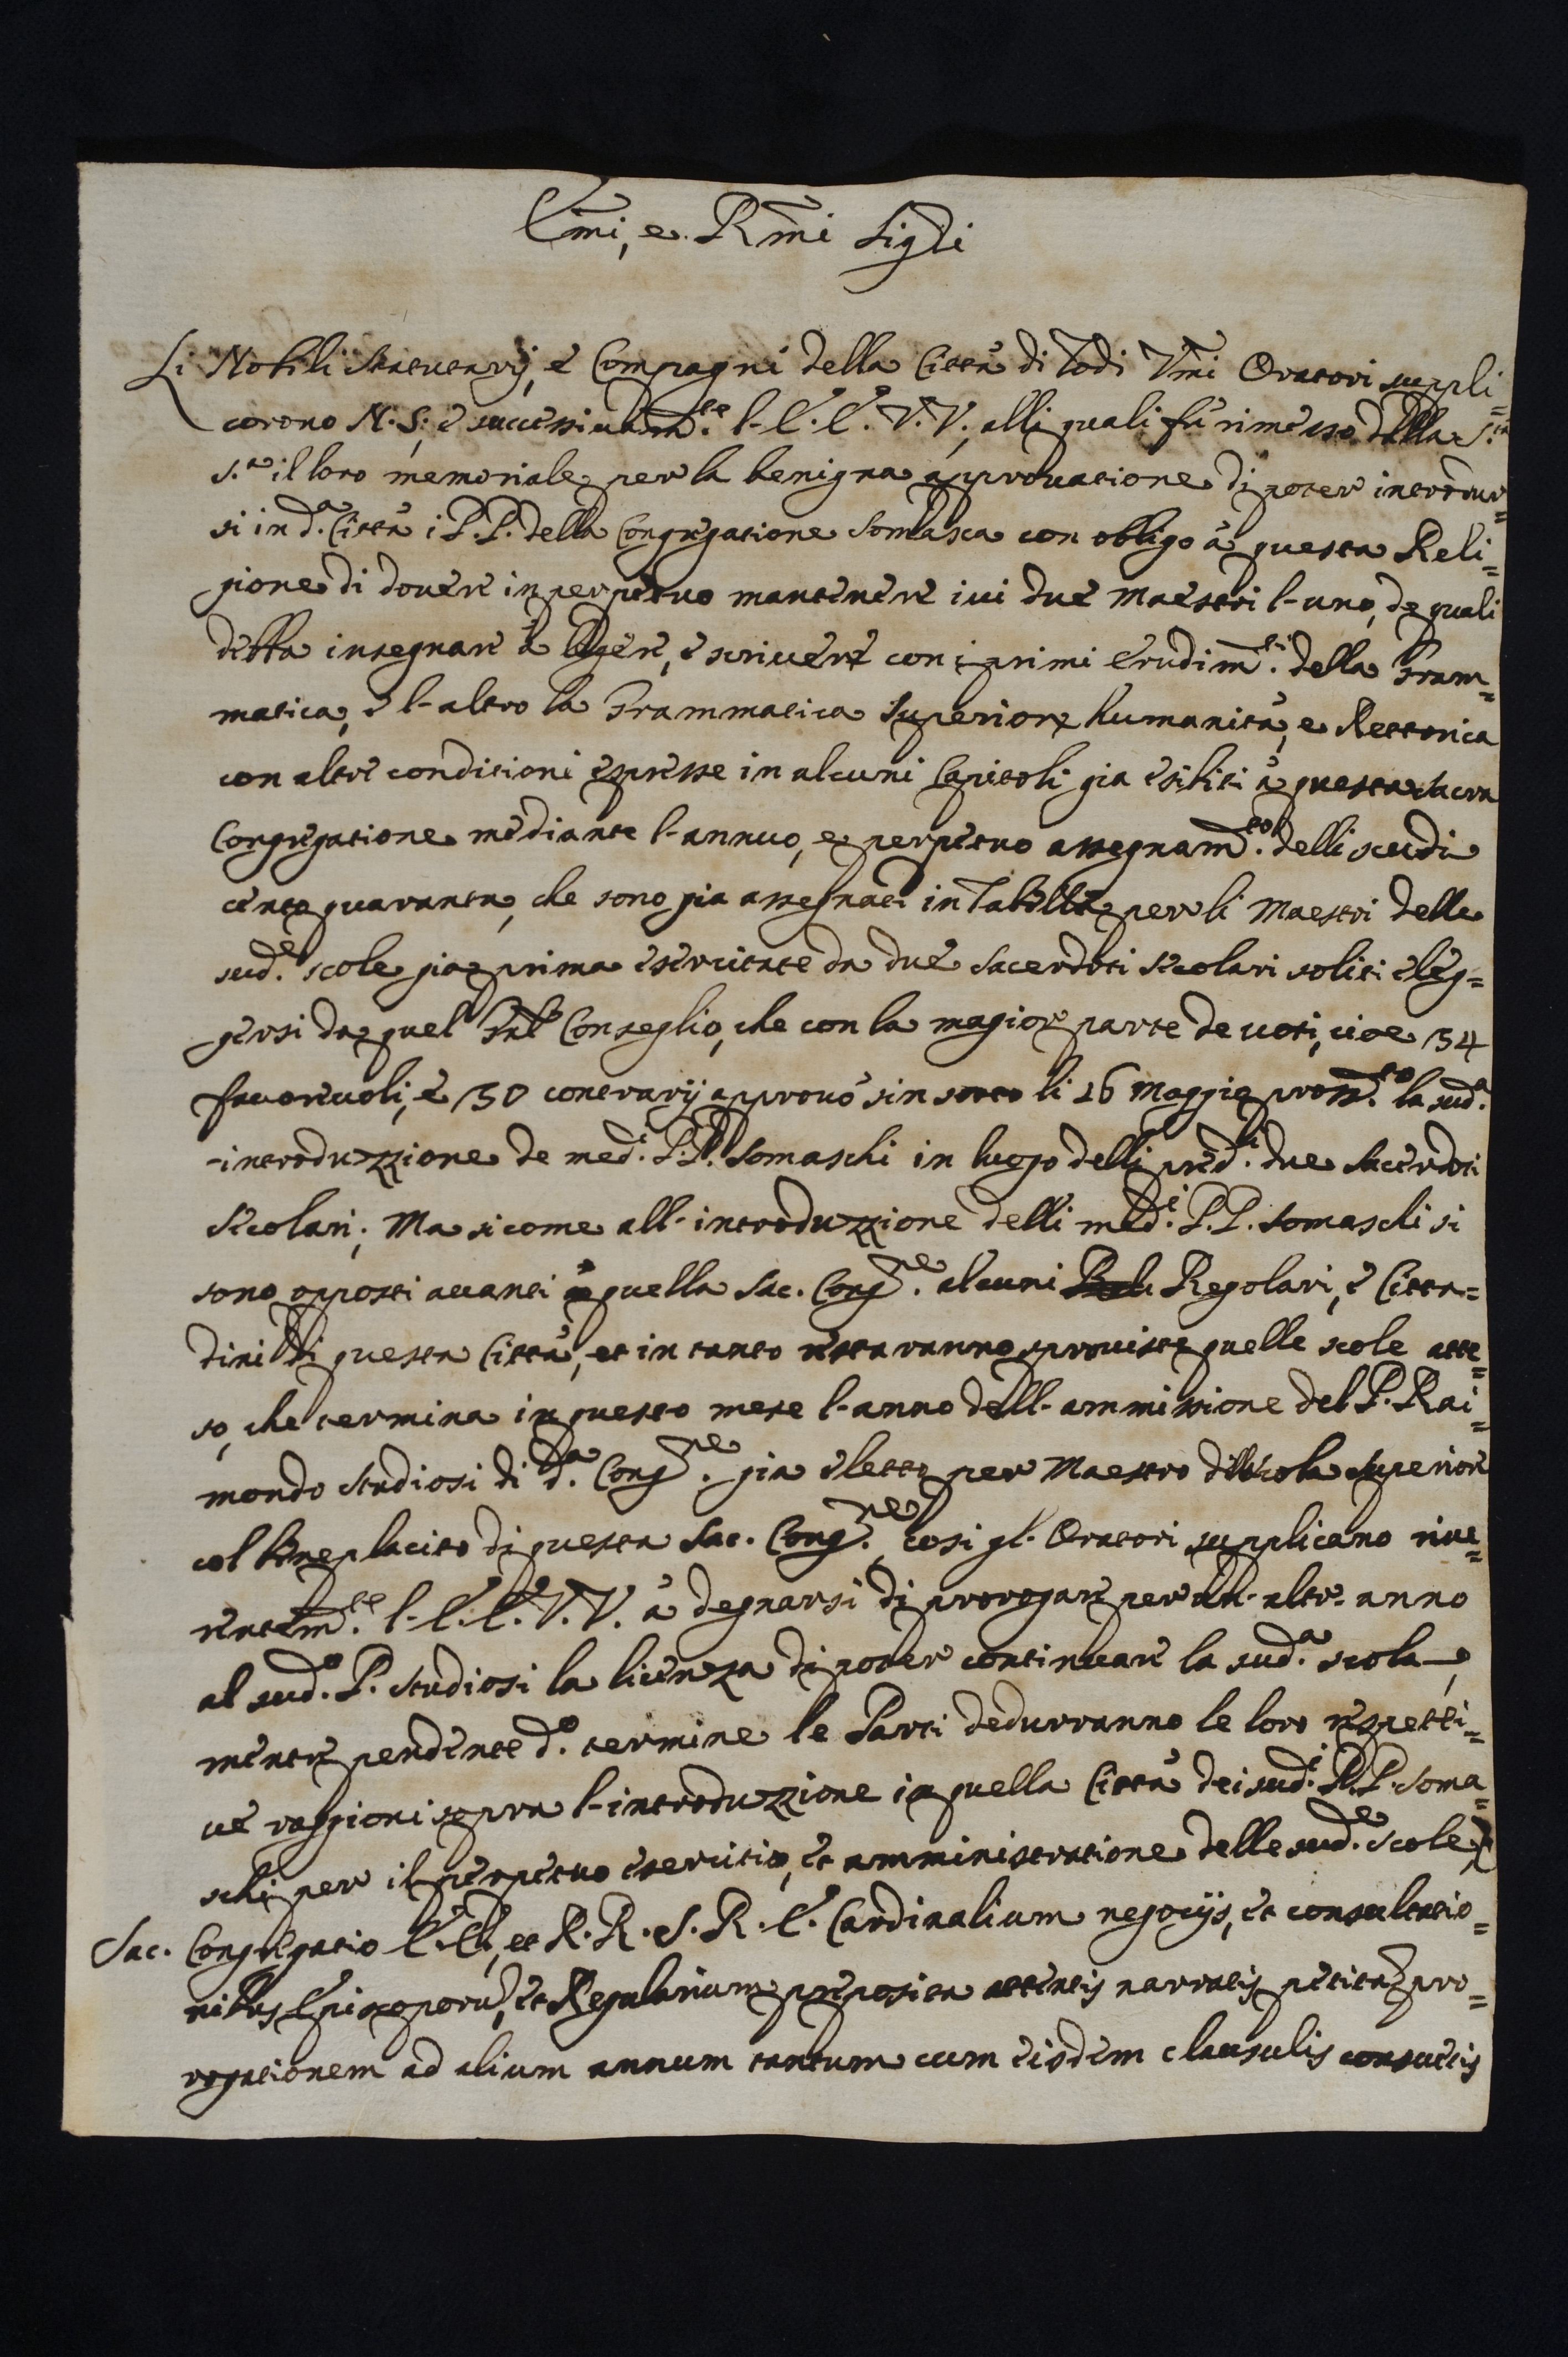 Emi, e Rmi Sigri
Li Nobili Statutarij, e Compagni della Città di Todi Umi Oratori suppli=
corono N. S. e successivam.te l'E. E. V. V., alli quali fù rimesso dalla S.tà
S.a il loro memoriale per la benigna approvatione di poter introdur=
si in d.a Città i P.P. della Congregatione Somasca con obligo à questa Reli=
gione di dovere in perpetuo mantenere ivi due Maestri l'uno, de quali
debba insegnare à legere, e scrivere con i primi erudim.ti della Gram=
matica, e l'altro la Grammatica Superiore humanità, e Rettorica
con altre conditioni espresse in alcuni Capitoli gia esibiti à questa Sacra
Congregatione mediante l'annuo, e perpetuo assegnam.to delli scudi
cento quaranta, che sono gia assegnati in Tabella per li Maestri delle
sud.e scole gia prima esercitate da due Sacerdoti secolari soliti eleg=
gersi da quel Gñl Conseglio, che con la magior parte de voti, cioe 34
favorevoli, e 30 contrarij approvò sin sotto li 16 Maggio pross.o la sud.a
introduzzione de med.i P.P. Somaschi in luogo delli pred.i due Sacerdoti
Secolari; Ma sicome all'introduzzione delli med.i P.P. Somaschi si
sono opposti avanti à quella Sac. Cong.ne alcuni Regolari, e Citta=
dini di questa Città, et in tanto restaranno sproviste quelle scole atte=
so, che termina in questo mese l'anno dell'ammissione del P. Rai=
mondo Studiosi di d.a Cong.ne gia eletto per Maestro di scola superiore
col beneplacito di questa Sac. Cong.ne, cosi gl'Oratori supplicano rive=
rentem.te l'E.E. V.V. à degnarsi di prorogare per un'altr'anno
al sud.o P. Studiosi la licenza di poter continuare la sud.a scola,
mentre pendente d.o termine le Parti dedurranno le loro respetti=
ve raggioni sopra l'introduzzione in quella Città dei sud.i P.P. Soma=
schi per il perpetuo esercitio, et amministratione delle sud.e scole
Sac. Congregatio E.E., et R.R. S. R. E. Cardinalium negocijs, et consultatio=
nibus Episcoporũ, et Regularium preposita attentis narratis petitam pro=
rogationem ad alium annum tantum cum eisdem clausulis consuetis